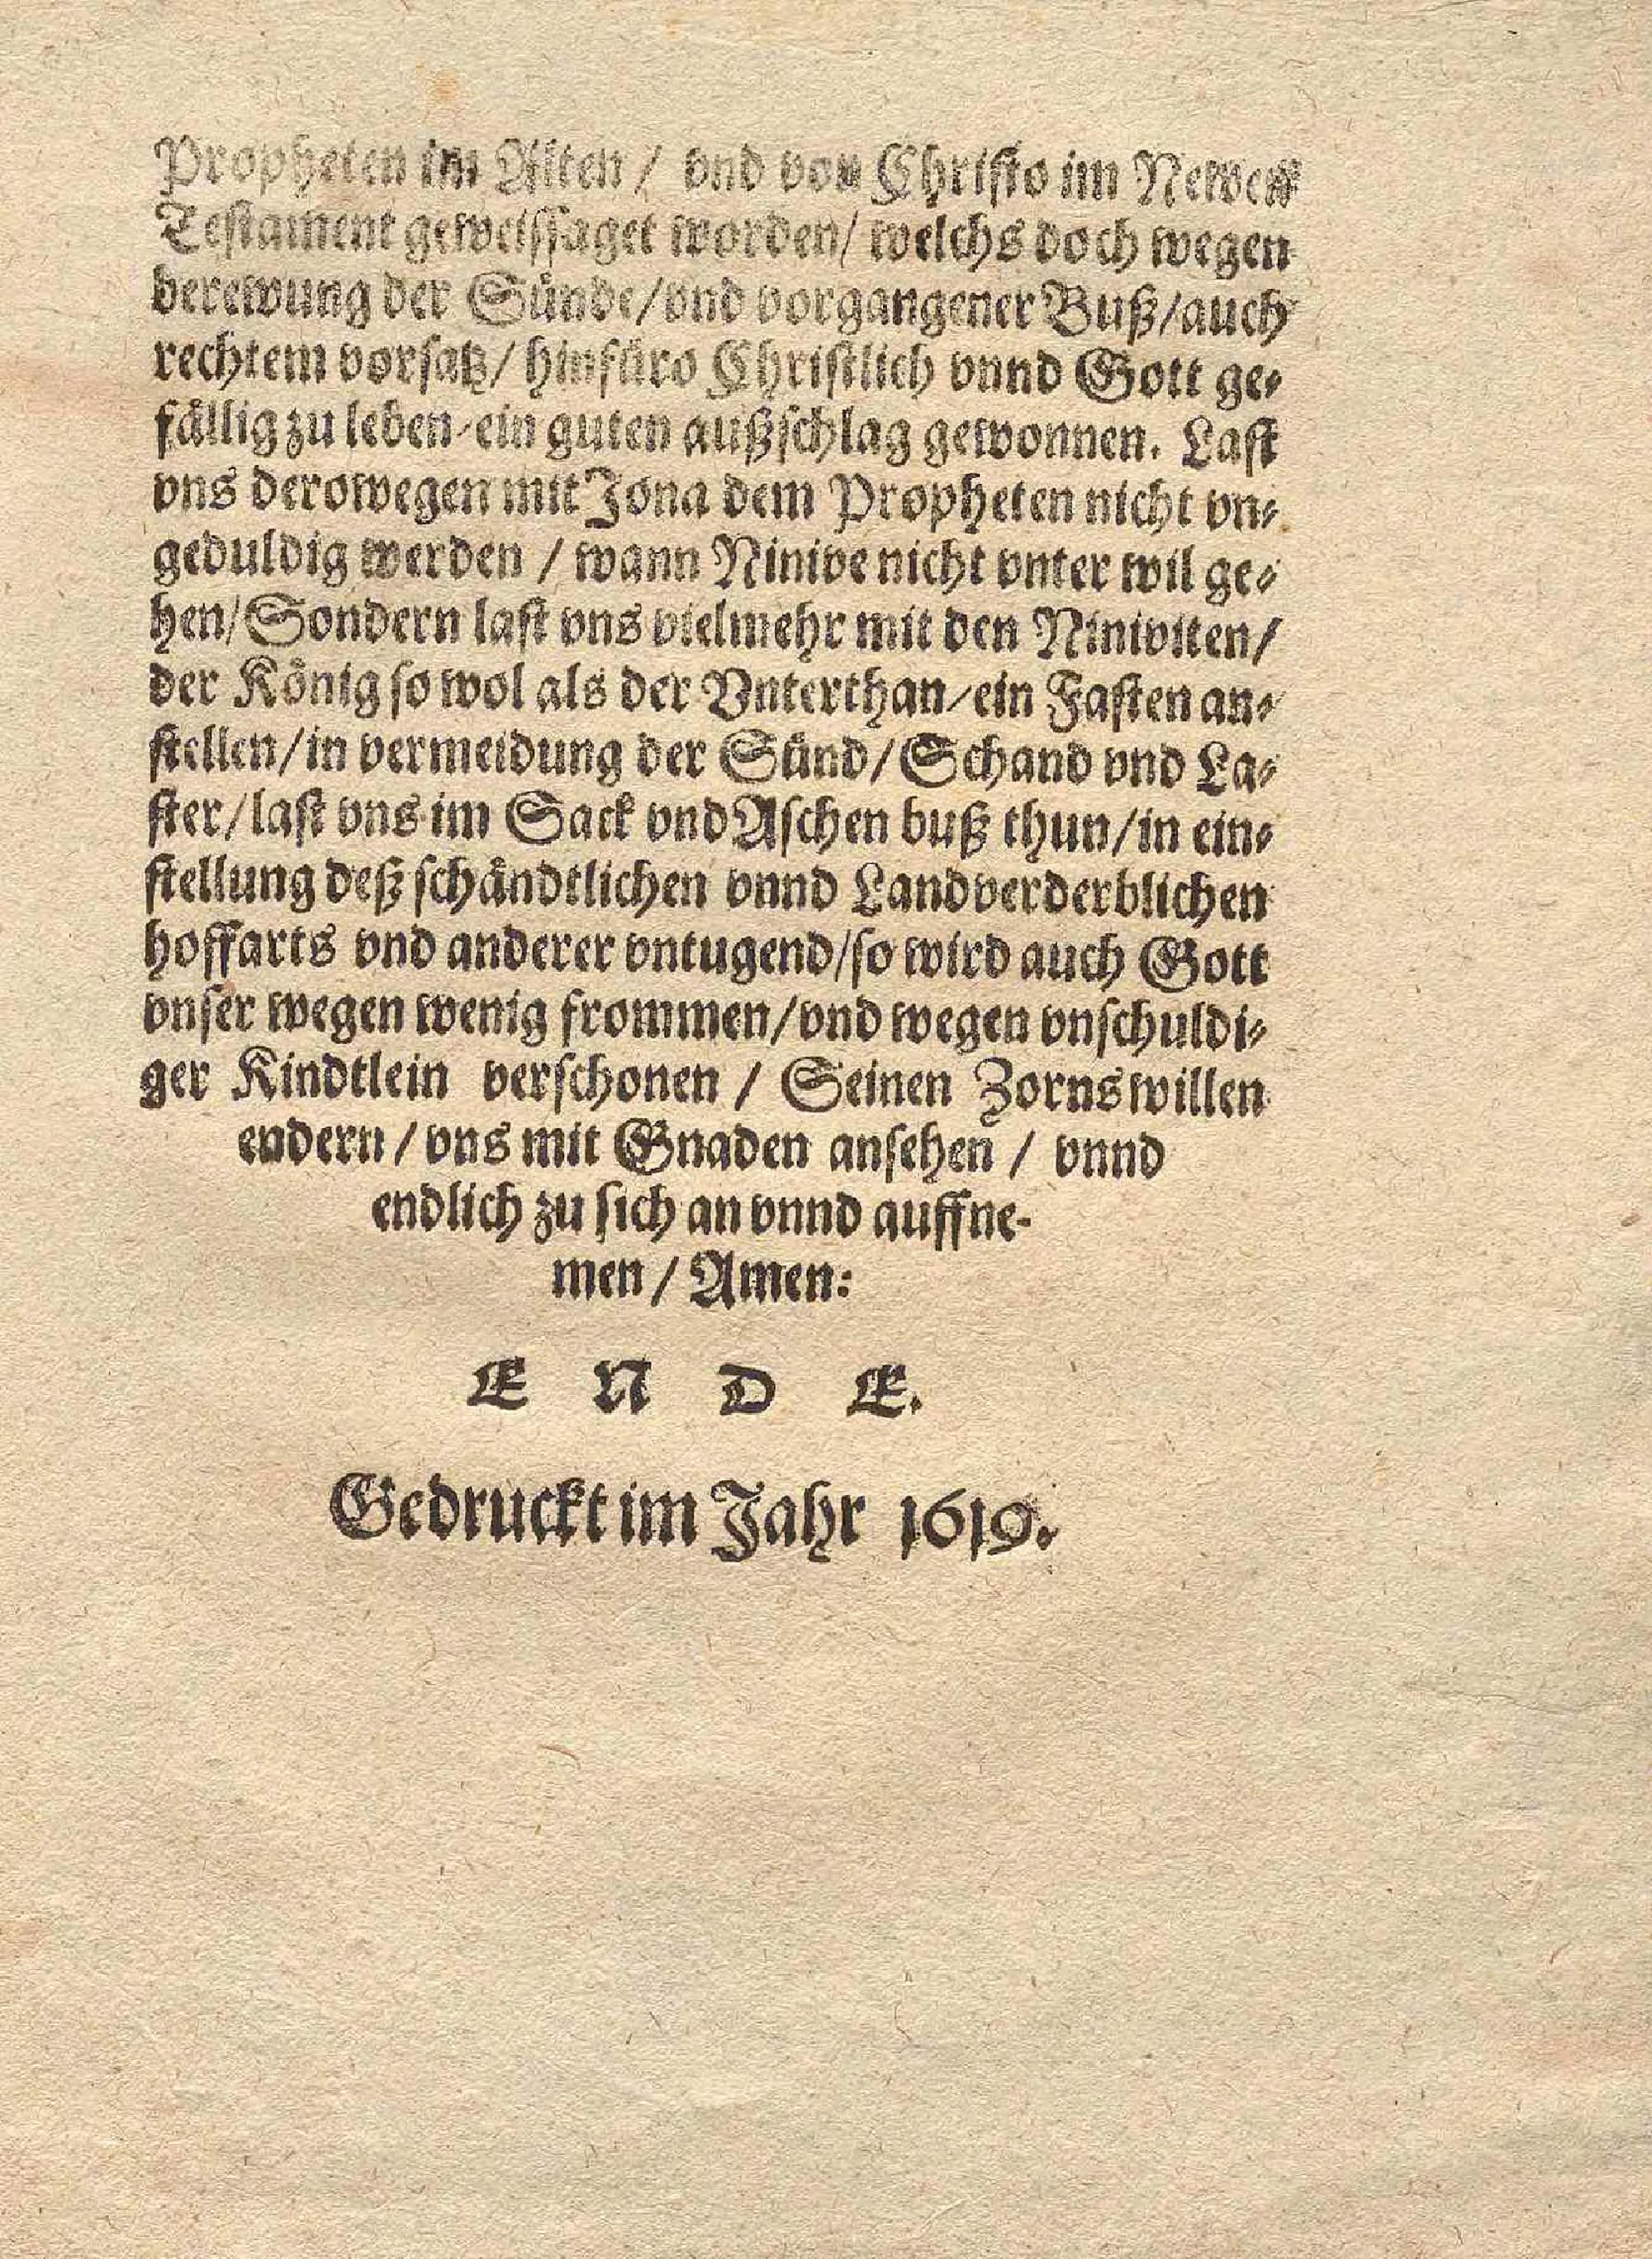 Propheten im Alten / vnd von Christo im Newen
Testament geweissaget worden / welchs doch wegen
berewung der Sünde / vnd vorgangener Buß / auch
rechtem vorsatz / hinfüro Christlich vnnd Gott ge-
fällig zu leben / ein guten außschlag gewonnen. Last
vns derowegen mit Jona dem Propheten nicht vn-
geduldig werden / wann Ninive nicht vnter wil ge-
hen / Sondern last vns vielmehr mit den Niniviten /
der König so wol als der Vnterthan / ein Fasten an-
stellen / in vermeidung der Sünd / Schand vnd La-
ster / last vns im Sack vnd Aschen buß thun / in ein-
stellung deß schändtlichen vnnd Landverderblichen
hoffarts vnd anderer vntugend / so wird auch Gott
vnser wegen wenig frommen / vnd wegen vnschuldi-
ger Kindtlein verschonen / Seinen Zorns willen
endern / vns mit Gnaden ansehen / vnnd
endlich zu sich an vnnd auffne-
men / Amen:
E N D E.
Gedruckt im Jahr 1619.